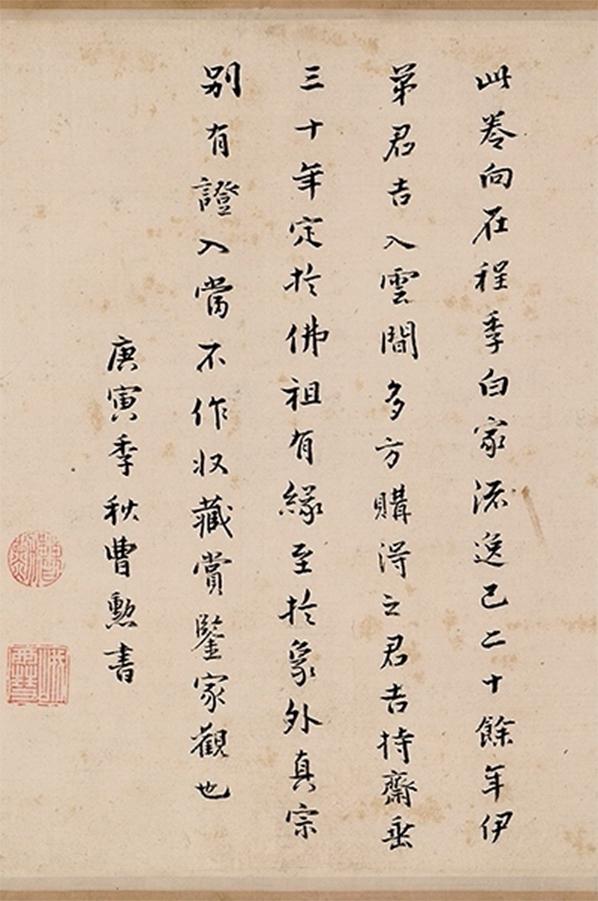 此卷向在程季白家流逸已二十餘年伊
弟君吉入雲間多方購得之君吉持齋垂
三十年定於佛祖有緣至於象外真宗
別有證入當不作収藏賞鑒家觀也
庚寅季秋曹勲書